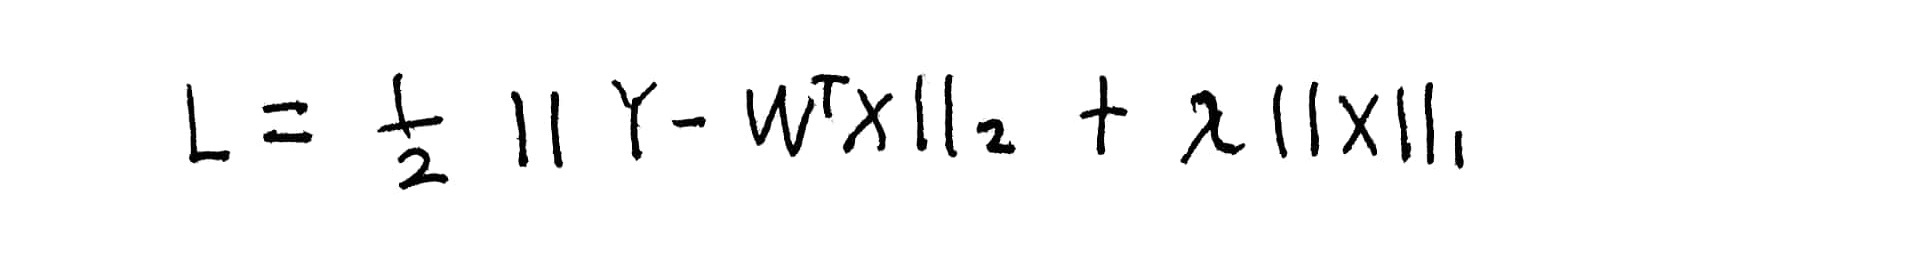 L = \frac{1}{2} || Y - W^T X ||_2 + λ || X ||_1